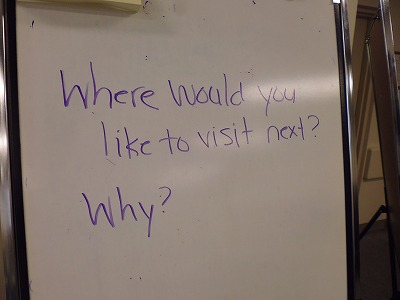 Where would you
like to visit next?
Why?